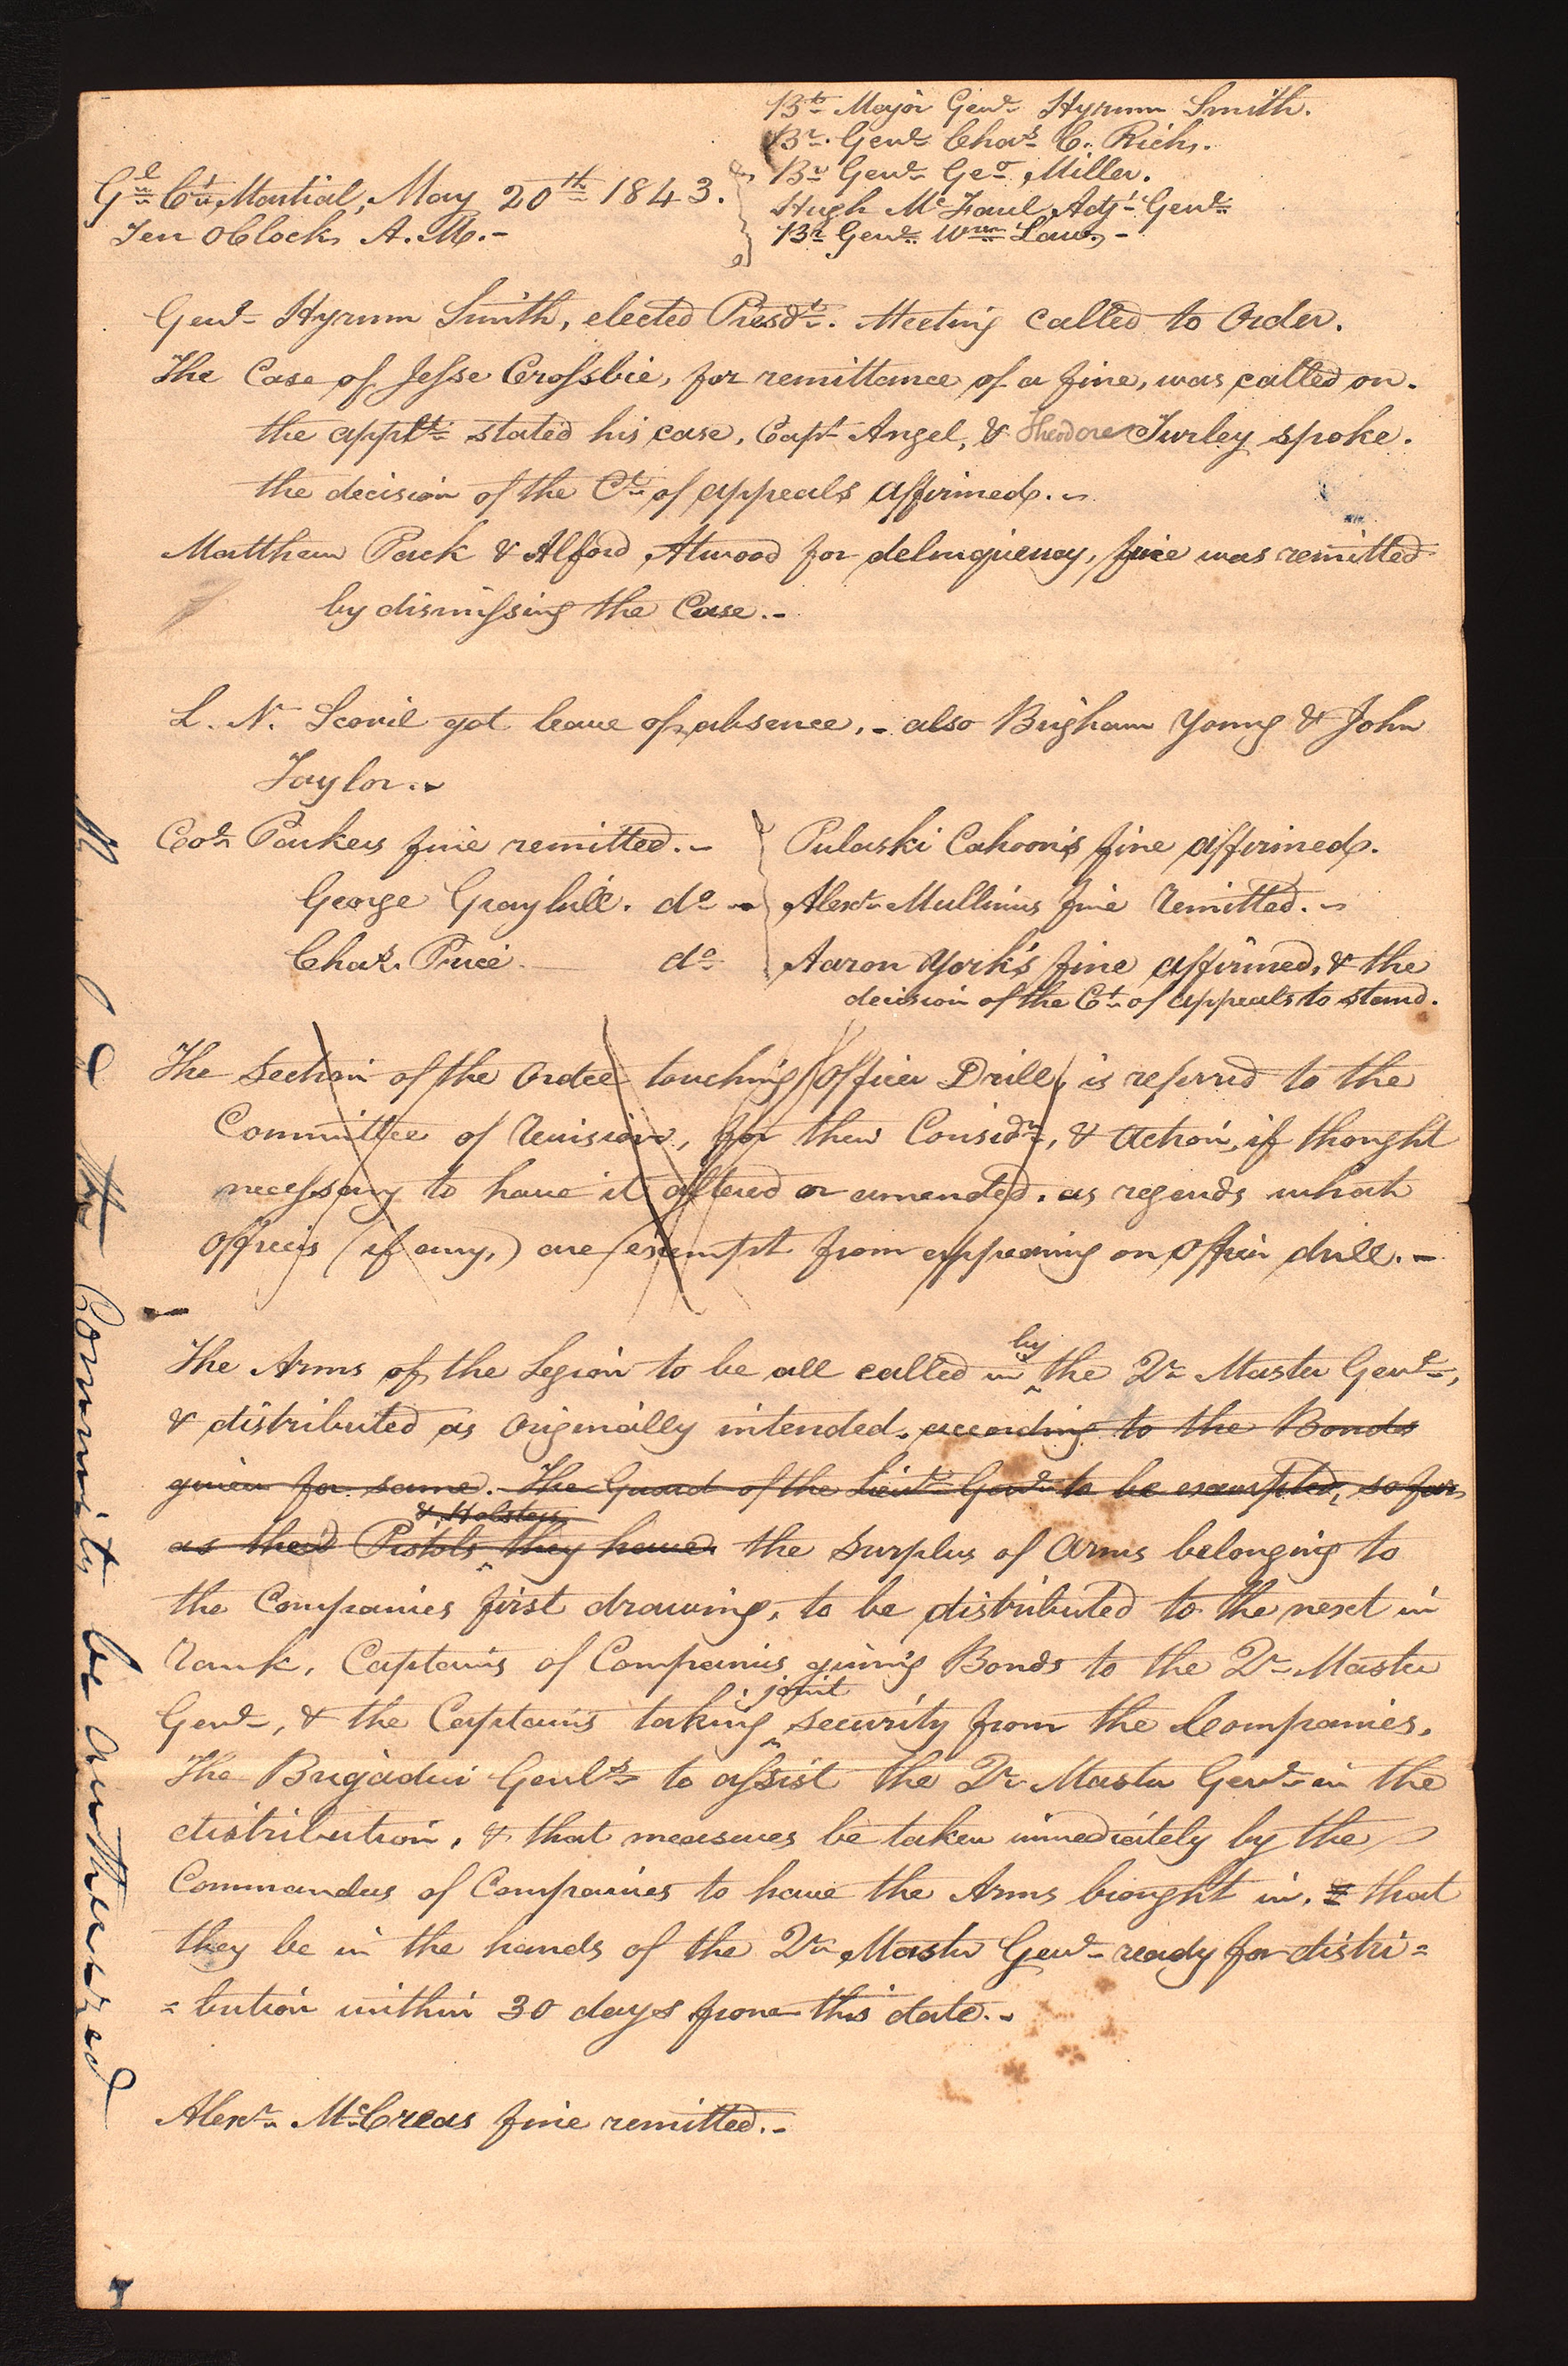 Bt Major Genl Hyrum Smith.
Br. Genl Chas C. Rich.
Gl Ct Martial, May 20th 1843.
Br Genl Geo Miller.
Hugh McFaul Adjt Genl
Ten OClock A.M.-
Br Genl Wm Law.-
Genl Hyrum Smith, elected Presdt. Meeting called to Order.
The Case of Jesse Crossbie, for remittance of a fine, was called on.
the applt stated his case, Capt Angel, & Theodore Turley spoke.
the decision of the Ct of appeals affirmed.-
Matthew Pack & Alford Atwood for delinquency, fine was remitted
by dismissing the Case.-
L. N. Scovil got leave of absence.- also Brigham Young & John
Taylor.-
Col Parkers fine remitted.-
Pulaski Cahoon's fine affirmed.
George Graybill. do -
Alexr Mullinius fine remitted.-
Chas. Price. do
Aaron York's fine affirmed, & the
decision of the Ct of appeals to stand.
The Section of the Order touching Officer Drill, is referrd to the
Committee of revision, for their Considn, & action, if thought
necessary to have it altered or amended. as regards what
Officers (if any,) are exempt from appearing on Officer drill.-
The Arms of the Legion to be all called in by the Qr Master Genl,
& distributed as originally intended. according to the Bonds
given for same. The Guard of the Lieut Genl to be exempted, so far
as their Pistols & Holsters they have. the surplus of Arms belonging to
the Companies first drawing, to be distributed to the next in
rank, Captains of Companies giving Bonds to the Qr Master
Genl, & the Captains taking joint security from the Companies.
The Brigadier Genls to assist the Qr Master Genl in the
distribution, & that measures be taken immediately by the
Commanders of Companies to have the Arms brought in, & that
they be in the hands of the Qr Master Genl ready for distri=
=bution within 30 days from this date.-
Alexr McCreas fine remitted.-
the Community be autherized